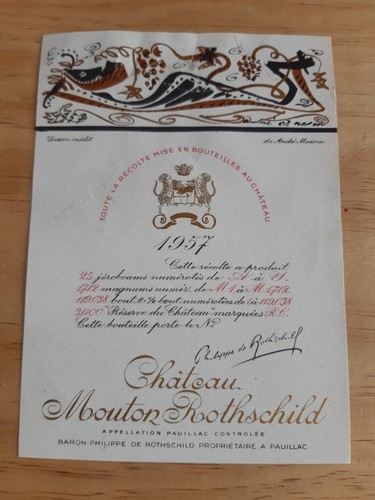 Dessin inédit
de André Masson
TOUTE LA RÉCOLTE MISE EN BOUTEILLES AU CHÂTEAU
1957
Cette récolte a produit
jéroboams numérotés de
1712 magnums numér. de M.1 à M.1712
119.038 bout. & ½ bout. numérotées de 1 à 119.038
3.000 "Réserve du Château" marquées R.C.
Cette bouteille porte le N°
Philippe de Rothschild
Château
Mouton Rothschild
APPELLATION PAUILLAC CONTROLÉE
BARON PHILIPPE DE ROTHSCHILD PROPRIÉTAIRE A PAUILLAC